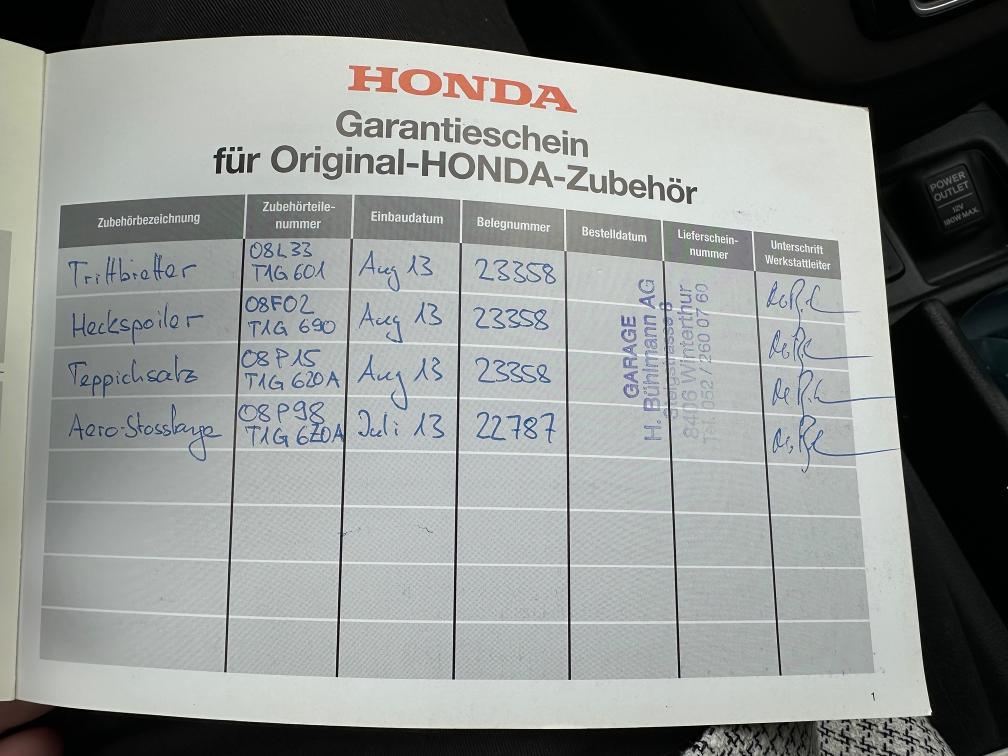 HONDA
Garantieschein
für Original-HONDA-Zubehör
Zubehörbezeichnung
Zubehörteile-
nummer
Einbaudatum
Belegnummer
Bestelldatum
Lieferschein-
nummer
Unterschrift
Werkstattleiter
Trittbretter
08L33
T1G 601
Aug 13
23358
Heckspoiler
08F02
T1G 690
Aug 13
23358
Teppichsatz
08P15
T1G 620A
Aug 13
23358
Aero-Stosstange
08P98
T1G 6Z0A
Juli 13
22787
GARAGE
H. Bühlmann AG
Steigstrasse 8
8406 Winterthur
Tel. 052 / 260 07 60
1
POWER
OUTLET
12V
180W MAX.